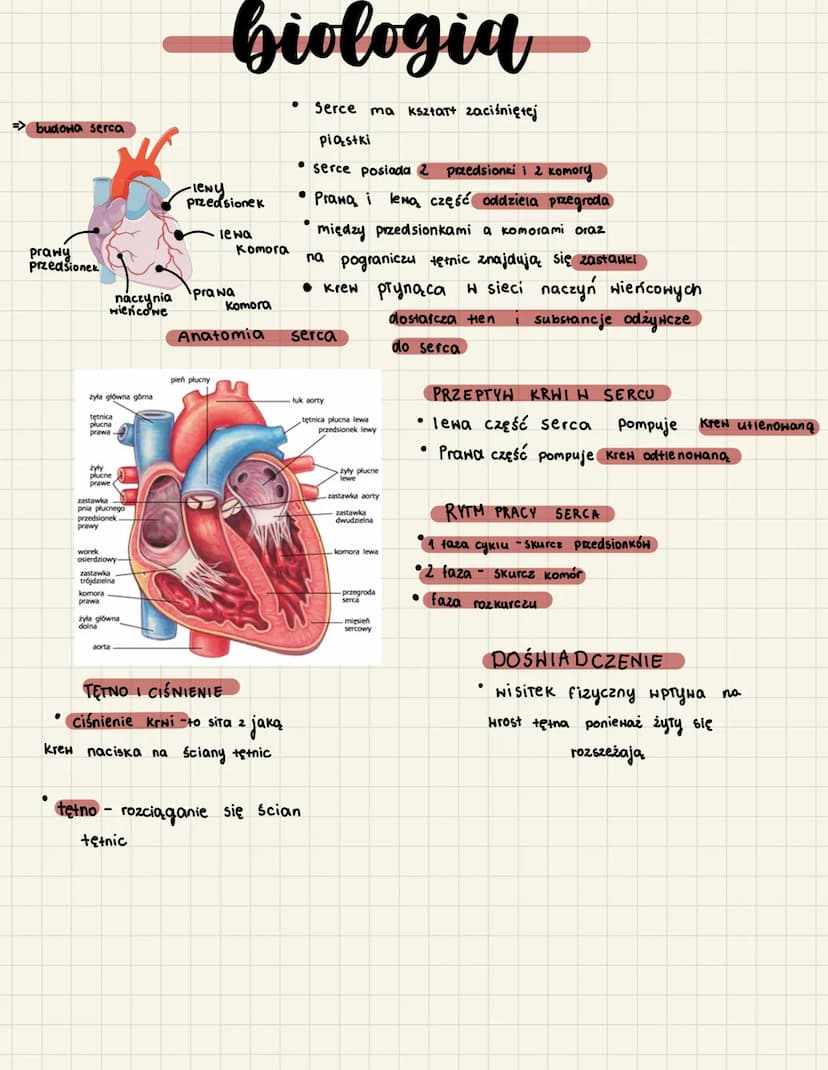 biologia
=> budowa serca
lewy
przedsionek
lewa
komora
prawy
przedsionek
naczynia
wieńcowe
prawa
komora
• Serce ma kształt zaciśniętej
piąstki
• serce posiada 2 przedsionki i 2 komory
• Prawą i lewą część oddziela przegroda
• między przedsionkami a komorami oraz
na pograniczu tętnic znajdują się zastawki
• krew płynąca w sieci naczyń wieńcowych
dostarcza tlen i substancje odżywcze
do serca
Anatomia serca
pień płucny
żyła główna górna
łuk aorty
tętnica
płucna
prawa
tętnica płucna lewa
przedsionek lewy
żyły
płucne
prawe
żyły płucne
lewe
zastawka
pnia płucnego
zastawka aorty
przedsionek
prawy
zastawka
dwudzielna
worek
osierdziowy
komora lewa
zastawka
trójdzielna
komora
prawa
przegroda
serca
żyła główna
dolna
mięsień
sercowy
aorta
PRZEPŁYW KRWI W SERCU
• lewa część serca pompuje krew utlenowaną
• Prawa część pompuje krew odtlenowaną
RYTM PRACY SERCA
• 1 faza cyklu - skurcz przedsionków
• 2 faza - skurcz komór
• faza rozkurczu
TĘTNO I CIŚNIENIE
• ciśnienie krwi - to siła z jaką
krew naciska na ściany tętnic
• tętno - rozciąganie się ścian
tętnic
DOŚWIADCZENIE
• wisiłek fizyczny wpływa na
wrost tętna ponieważ żyły się
rozszeżają